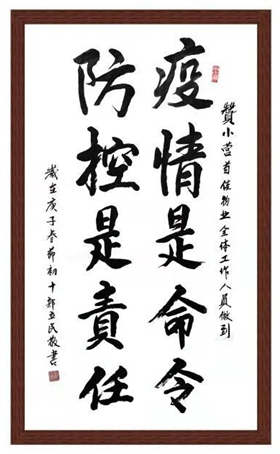 贊小营首佳物业全体工作人員做到
疫情是命令
防控是責任
歲在庚子春節初十郭民敬書